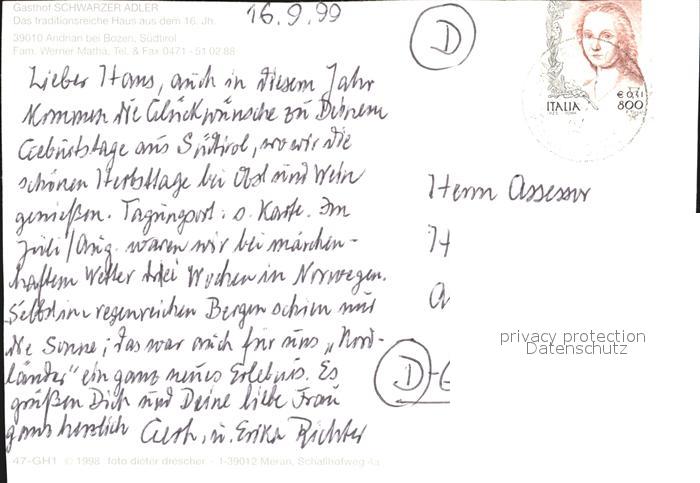 Gasthof SCHWARZER ADLER
Das traditionsreiche Haus aus dem 16. Jh.
39010 Andrian bei Bozen, Südtirol
Fam. Werner Mathà, Tel. & Fax 0471 - 51 02 88
16.9.99
Lieber Hans, auch in diesem Jahr
kommen die Glückwünsche zu Deinem
Geburtstage aus Südtirol, wo wir die
schönen Herbsttage bei Obst und Wein
genießen. Tagungsort: s. Karte. Im
Juli/Aug. waren wir bei märchen-
haftem Wetter drei Wochen in Norwegen.
Selbst im regenreichen Bergen schien nur
die Sonne; das war auch für uns „Nord-
länder" ein ganz neues Erlebnis. Es
grüßen Dich und Deine liebe Frau
ganz herzlich Gerh. u. Erika Richter
47-GH1 © 1998 foto dieter drescher - I-39012 Meran, Schallhofweg
D
ITALIA
€ 0,41
800
Herrn Assessor
H
D-6
privacy protection
Datenschutz